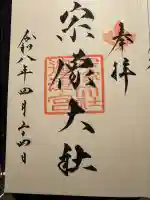 奉拝
宗像大社
令和八年四月二十四日